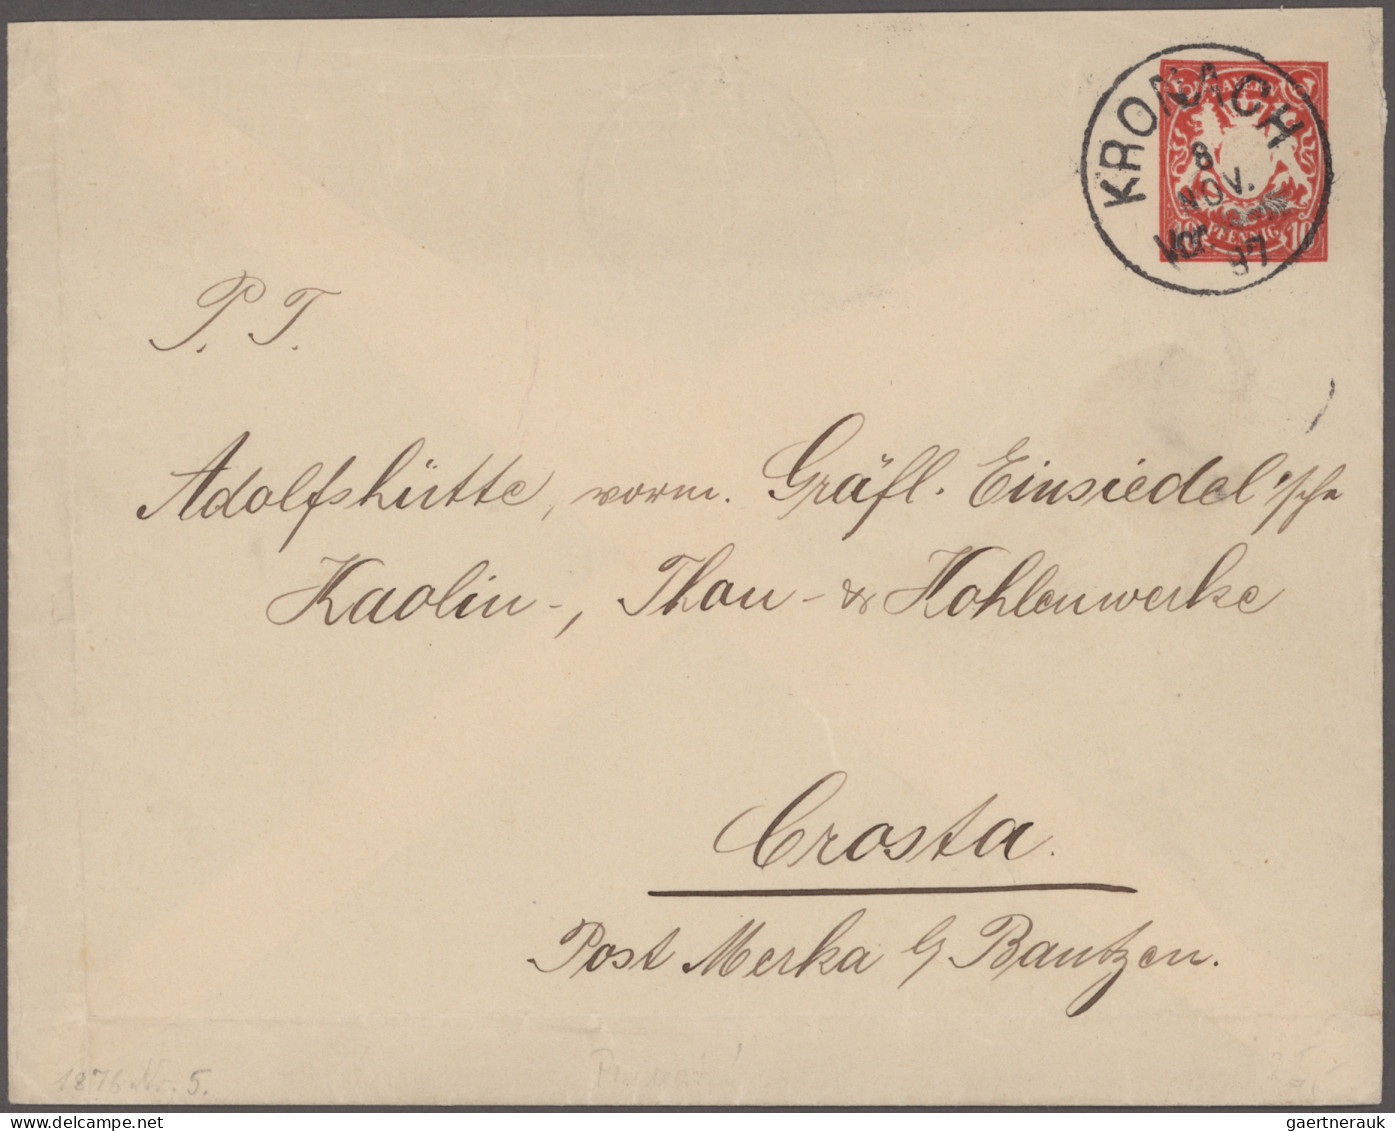 KRONACH
8
NOV.
Vor. 97
BAYERN
PFENNIG 10
P. T.
Adolfshütte, vorm. Gräfl. Einsiedel'sche
Kaolin-, Thon- & Kohlenwerke
Crosta.
Post Merka b/ Bautzen.
1876 Nr. 5.
gaertnerauk